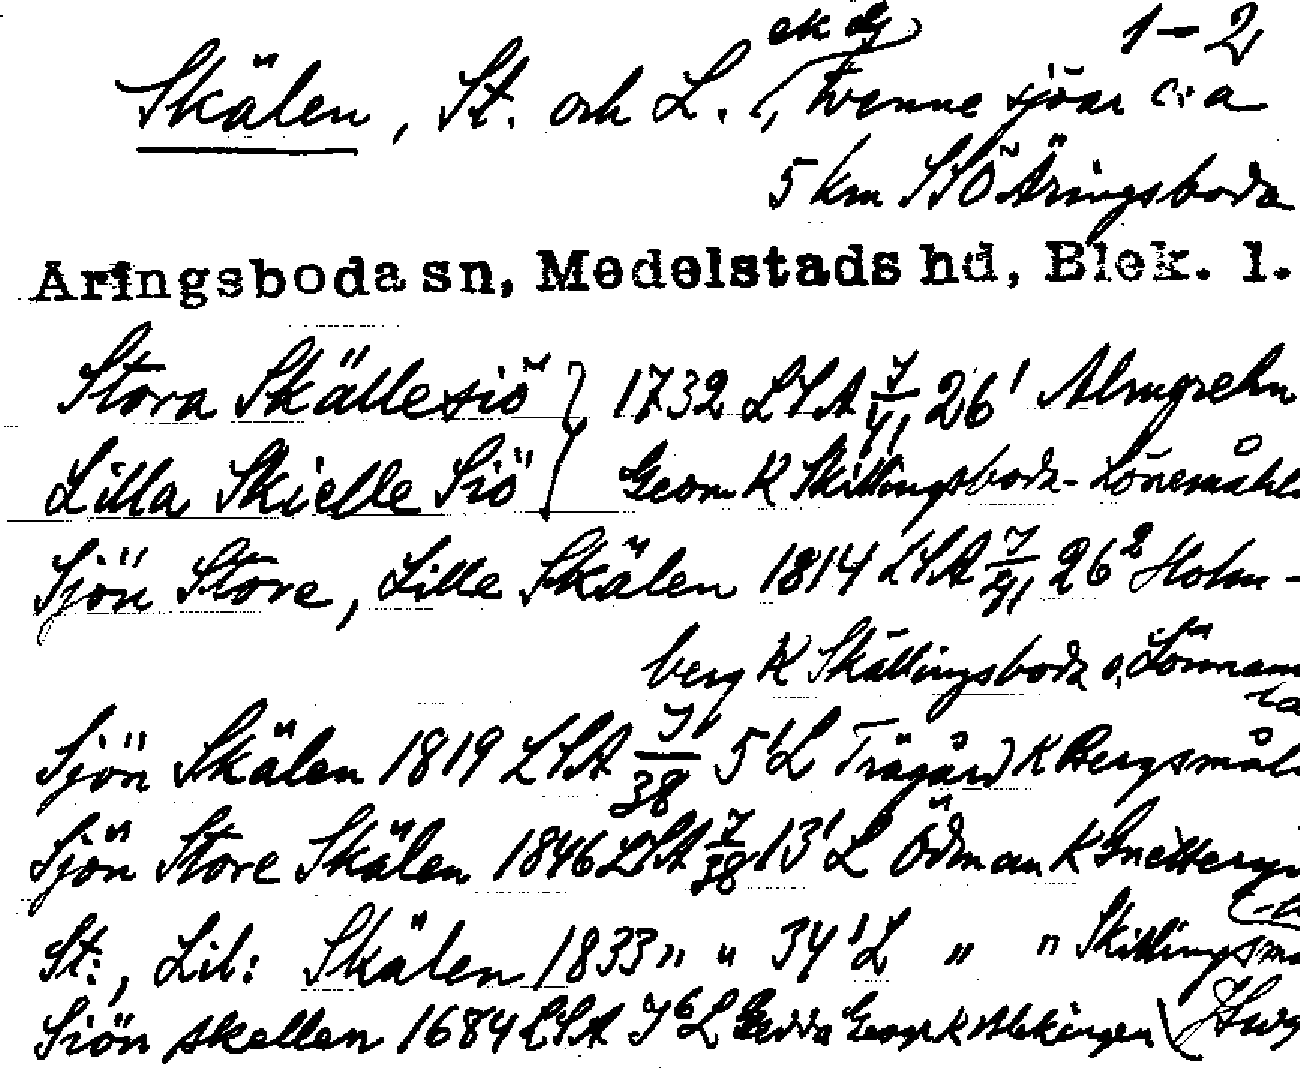 ek dg 1-2
Skälen, St. och L., Tvenne sjöar c:a
5 km SSÖ Åringsboda
Aringsboda sn, Medelstads hd, Blek. l.
Stora Skällesiö } 1732 LSA 7/41 26¹ Almgrehn
Lilla Skielle Siö Geom K Skillingsboda-Lönemåhl
Sjön Store, Lille Skälen 1814 LSA 7/41 26² Holm-
berg K Skällingsboda o. Lönnam
la
Sjön Skälen 1819 LSA 7/38 5¹L Trägård K Bergsmåla
Sjön Store Skälen 1846 LSA 7/38 13¹L Ödman K
St:, Lil: Skälen 1833 " " 34¹L " " Skillingsmå
Siön skellen 1684 LSA J⁶L Gedda Geogr K Blekingen